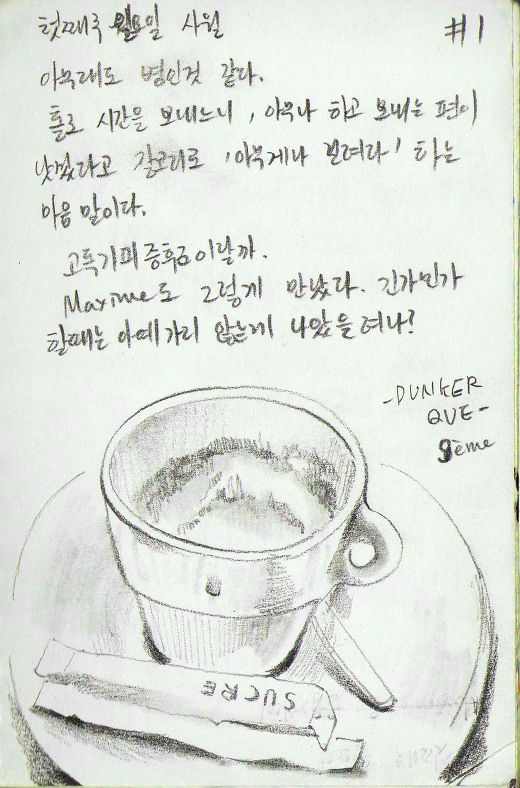 첫째주 월요일 사월
#1
아무래도 병인것 같다.
홀로 시간을 보내느니, 아무나 하고 보내는 편이
낫겠다고 갈고리로 '아무게나 걸려라' 하는
마음 말이다.
고독기피증후군이랄까.
Maxime도 그렇게 만났다. 긴가민가
할때는 아예 가리 않는게 나았을려나?
-DUNKER
QUE-
9ème
SUCRE